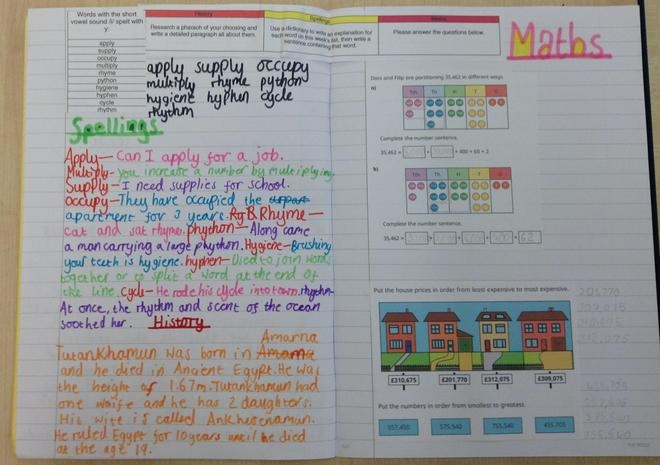 Words with the short
vowel sound /i/ spelt with
y
apply
supply
occupy
multiply
rhyme
python
hygiene
hyphen
cycle
rhythm
History
Research a pharaoh of your choosing and
write a detailed paragraph all about them.
Spellings
Use a dictionary to write an explanation for
each word on this week's list, then write a
sentence containing that word.
Maths
Please answer the questions below.
apply supply occupy
multiply rhyme python
hygiene hyphen cycle
rhythm
Spellings
Apply— Can I apply for a job.
Multiply— you increase a number by multiplying
Supply— I need supplies for school.
occupy—They have occupied the
apartment for 3 years. Rhyme—
cat and sat rhyme. phython— Along came
a man carrying a large phython. Hygiene—Brushing
your teeth is hygiene. hyphen— Used to join words
together or to split a word at the end of
the line. cycle— He rode his cycle into town. rhythm—
At once, the rhythm and scent of the ocean
soothed her. History
Amarna
Tutankhamun was born in
and he died in Ancient Egypt. He was
the height of 1.67m. Tutankhamun had
one waife and he has 2 daughters.
His wife is called Ankhesenamun.
He ruled Egypt for 10 years until he died
at the age 19.
Maths
Dani and Filip are partitioning 35,462 in different ways.
a)
TTh Th H T O
Complete the number sentence.
35,462 = + + 400 + 60 + 2
b)
TTh Th H T O
Complete the number sentence.
35,462 = + + + + 62
Put the house prices in order from least expensive to most expensive.
£310,675 £201,770 £312,075 £309,075
201,770
309,075
310,675
312,075
Put the numbers in order from smallest to greatest.
557,450 575,540 755,540 455,705
455,705
557,450
575,540
755,540